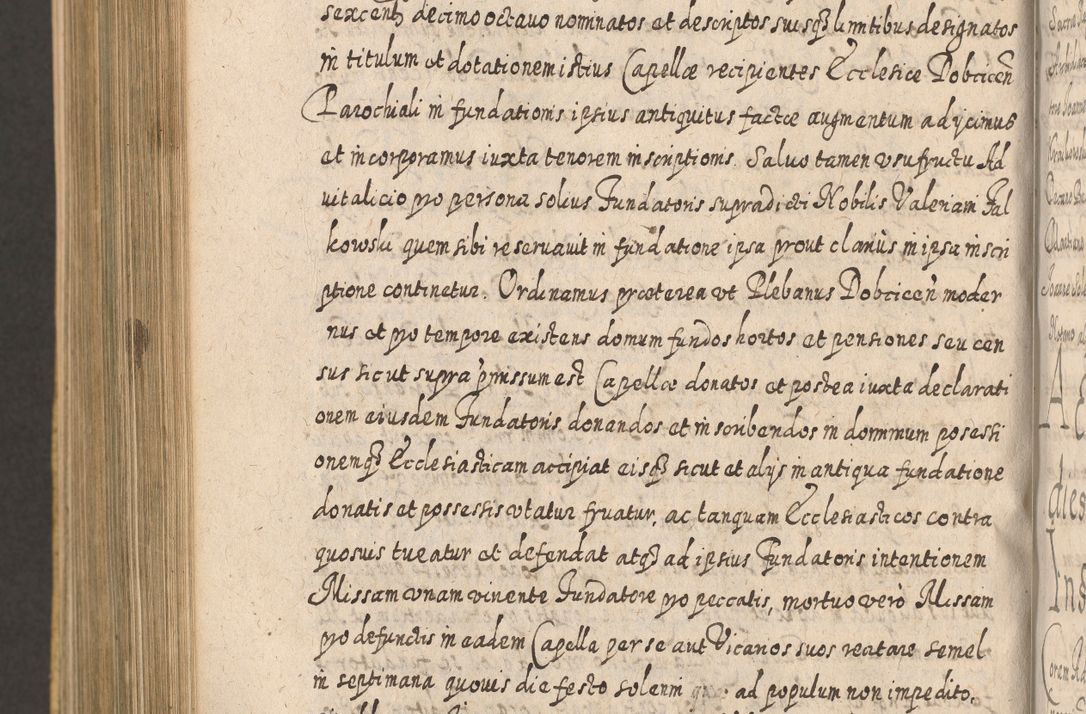 sexcentꝫ decimo octauo nominatos et descriptos suisqꝫ limitibus designatos
in titulum et dotationem istius Capellæ recipientes Ecclesiæ Dobcicen̄
Parochiali in fundationis ipsius antiquitus factæ augmentum adycimus
et incorporamus iuxta tenorem inscriptionis. Saluo tamen vsufructu Ad
uitalicio pro persona solius Fundatoris supradicti Nobilis Valeriani Fal
kowski quem sibi reseruauit in fundatione ipsa prout clariùs in ipsa inscri
ptione continetur. Ordinamus præterea vt Plebanus Dobcicen̄ moder
nus et pro tempore existens domum fundos hortos et pensiones seu cen
sus sicut supra p̄missum est Capellæ donatos et postea iuxta declarati
onem eiusdem Fundatoris donandos et inscribendos in dominium posessi
onemqꝫ Ecclesiasticam accipiat eisqꝫ sicut et alys in antiqua fundatione
donatis et possessis vtatur fruatur, ac tanquam Ecclesiasticos contra
quosuis tueatur et defendat atqꝫ ad ipsius Fundatoris intentionem
Missam vnam viuente Fundatore pro peccatis, mortuo verò Missam
pro defunctis in eadem Capella per se aut Vicarios suos recitare semel
in septimana quouis die festo solenni ad populum non impedito.